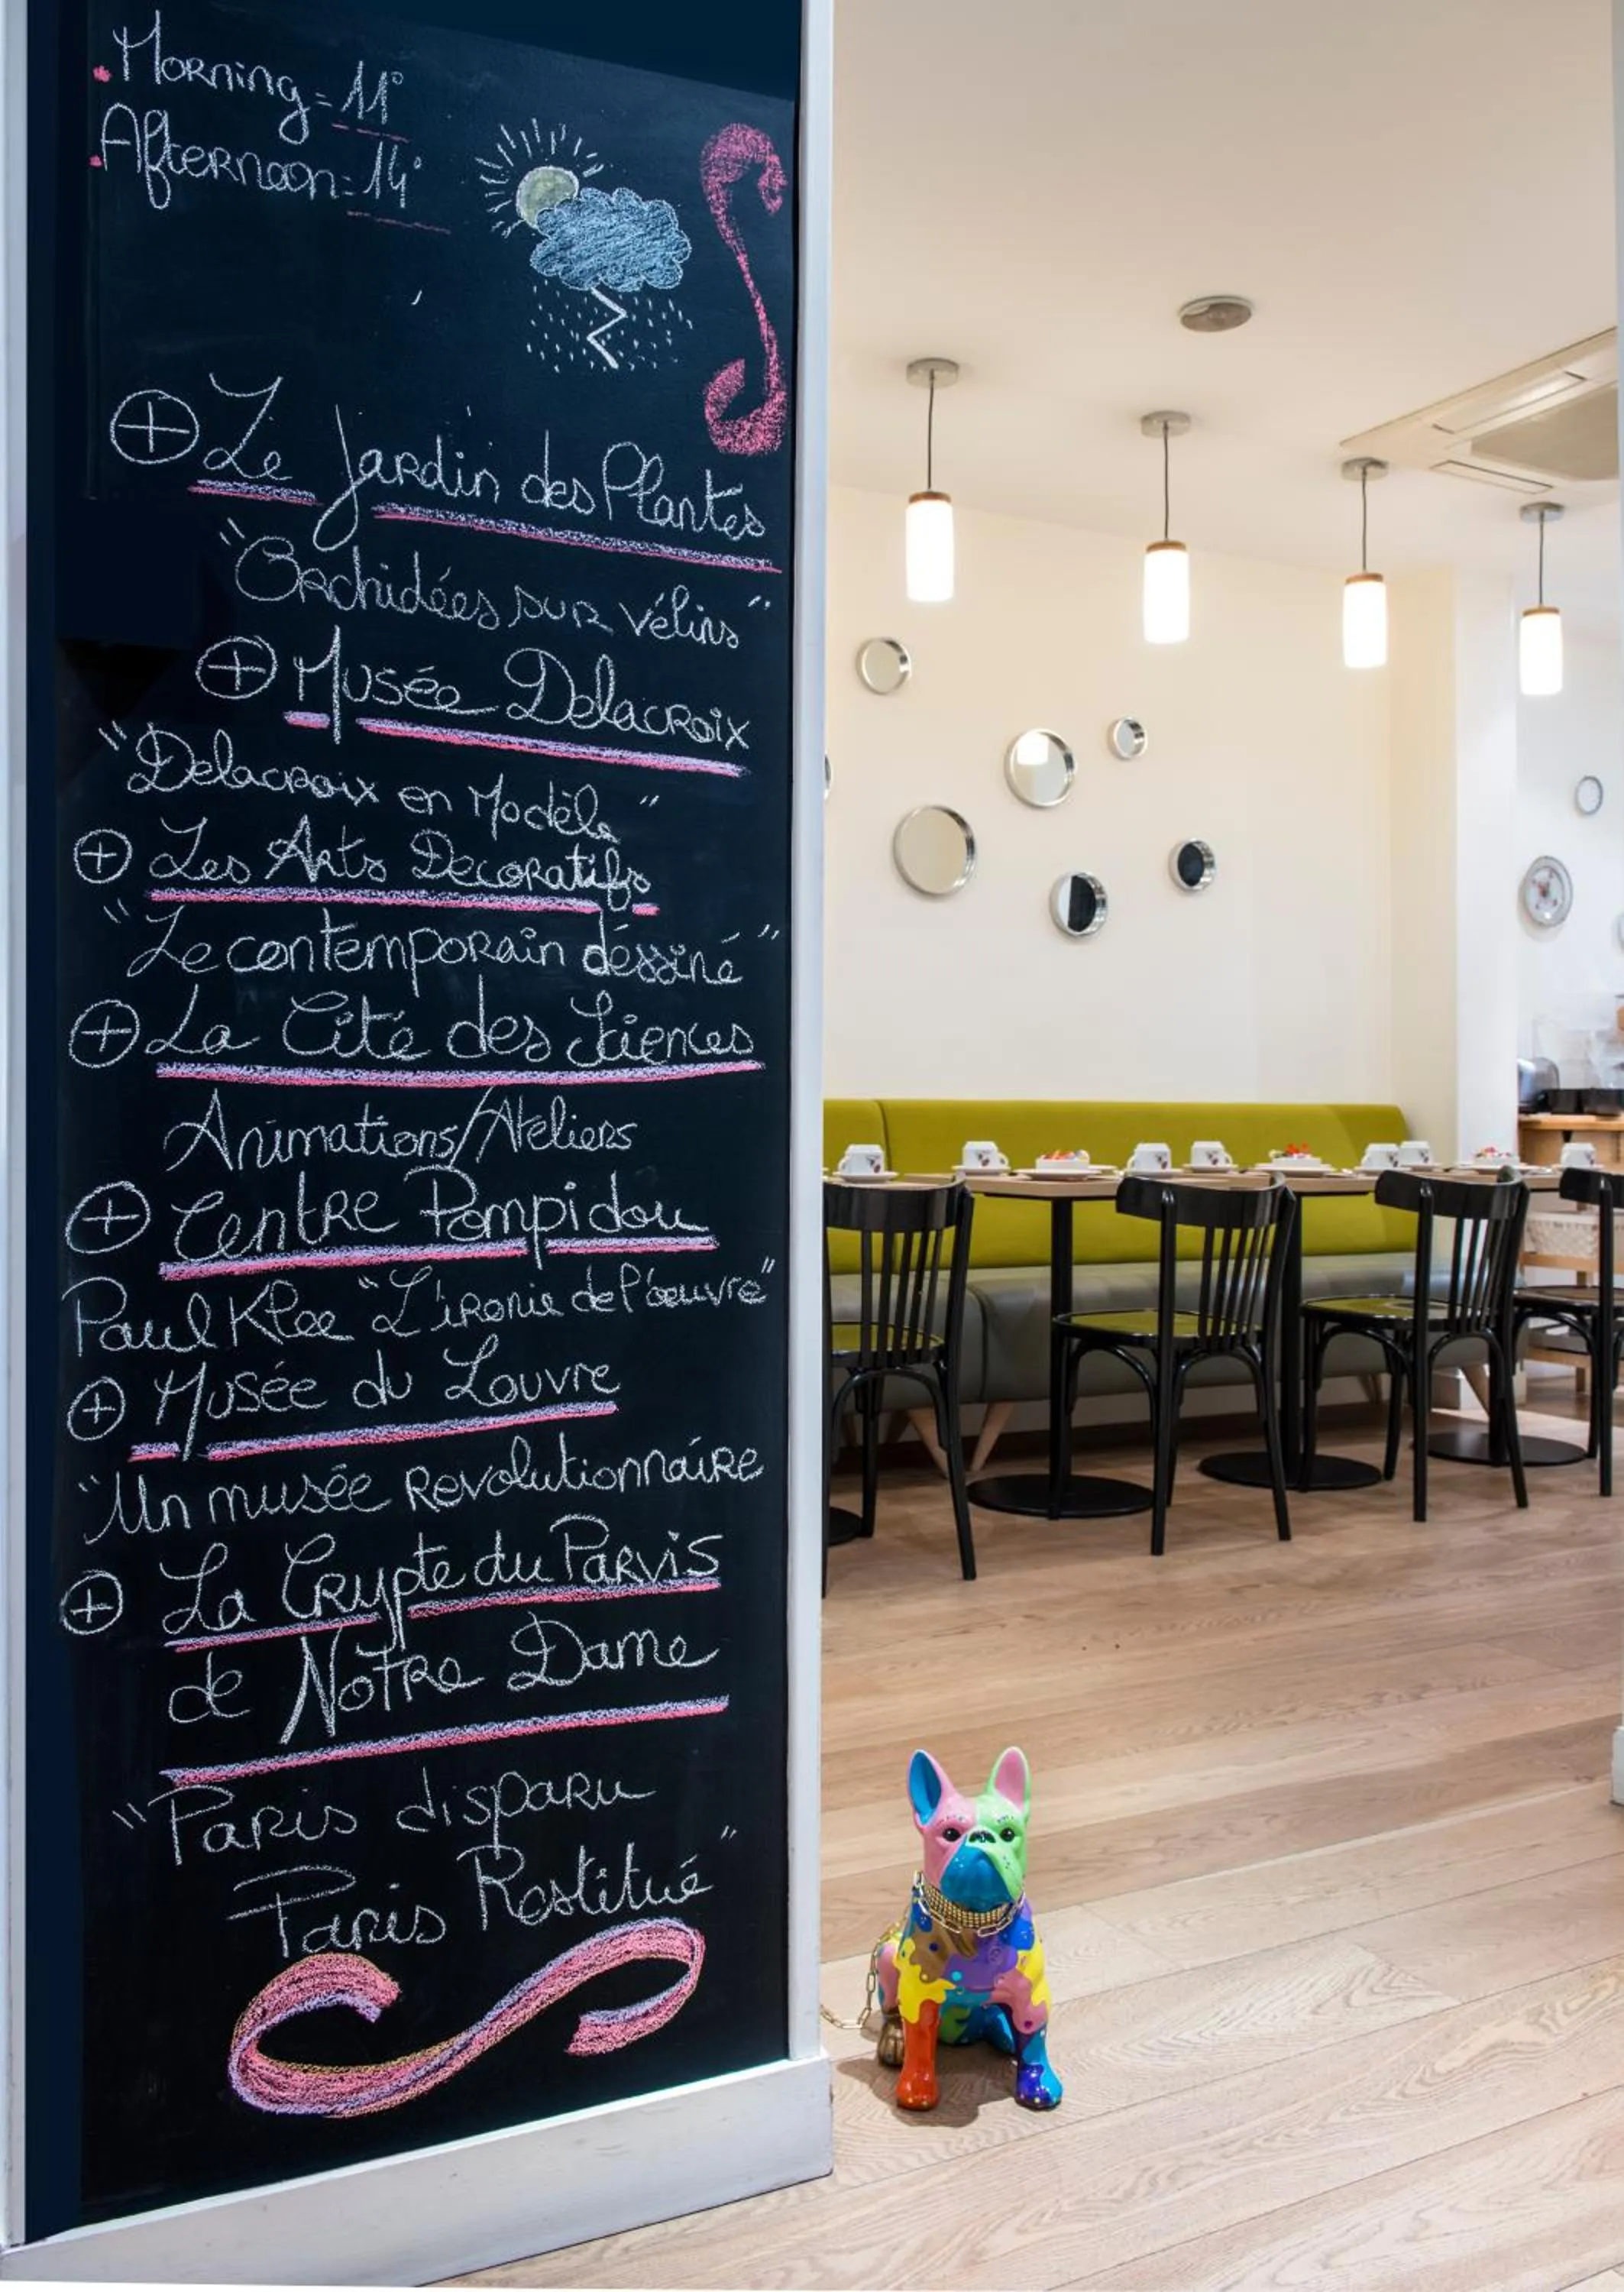 Morning = 11°
Afternoon = 14°
⊕ Le Jardin des Plantes
"Orchidées sur vélins"
⊕ Musée Delacroix
"Delacroix en Modèle"
⊕ Les Arts Decoratifs
"Le contemporain déssiné"
⊕ La Cité des Sciences
Animations/Ateliers
⊕ Centre Pompidou
Paul Klee "L'ironie de l'œuvre"
⊕ Musée du Louvre
"Un musée Revolutionnaire
⊕ La Crypte du Parvis
de Notre Dame
"Paris disparu
Paris Restitué"